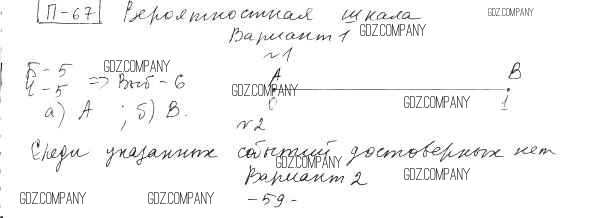 П-67 Вероятностная шкала GDZ.COMPANY
Вариант 1 GDZ.COMPANY
№1
Б-5 GDZ.COMPANY А В
Ч-5 => Выб-6 GDZ.COMPANY 0 1
а) А ; б) В. GDZ.COMPANY
№2
Среди указанных событий достоверных нет
GDZ.COMPANY
Вариант 2 GDZ.COMPANY
GDZ.COMPANY GDZ.COMPANY -59- GDZ.COMPANY